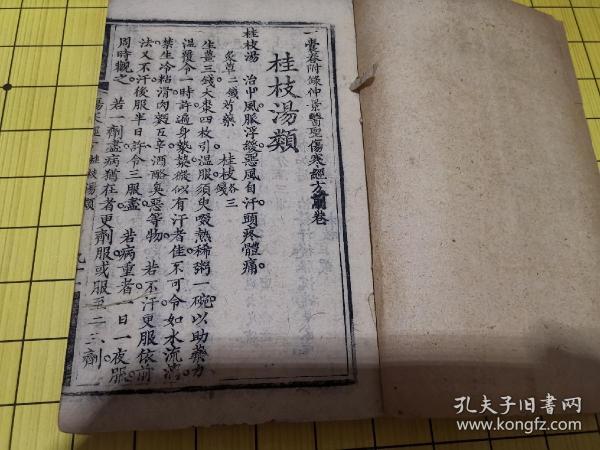 一囊春附錄仲景醫聖傷寒經方蘭卷
桂枝湯類
桂枝湯 治中風脈浮緩惡風自汗頭疼體痛
桂枝 各三錢
炙草二錢 芍藥
生薑三錢大棗四枚引温服須臾啜熱稀粥一碗以助藥力
温覆令一時許遍身漐漐微似有汗者佳不可令如水流漓
禁生冷粘滑肉麵五辛酒酪臭惡等物 若不汗更服依前
法又不汗後服半日許令三服盡 若病重者一日一夜服
周時觀之 若一劑盡病猶在者更劑服或服至二三劑
桂枝湯類
孔夫子旧书网
www.kongfz.com